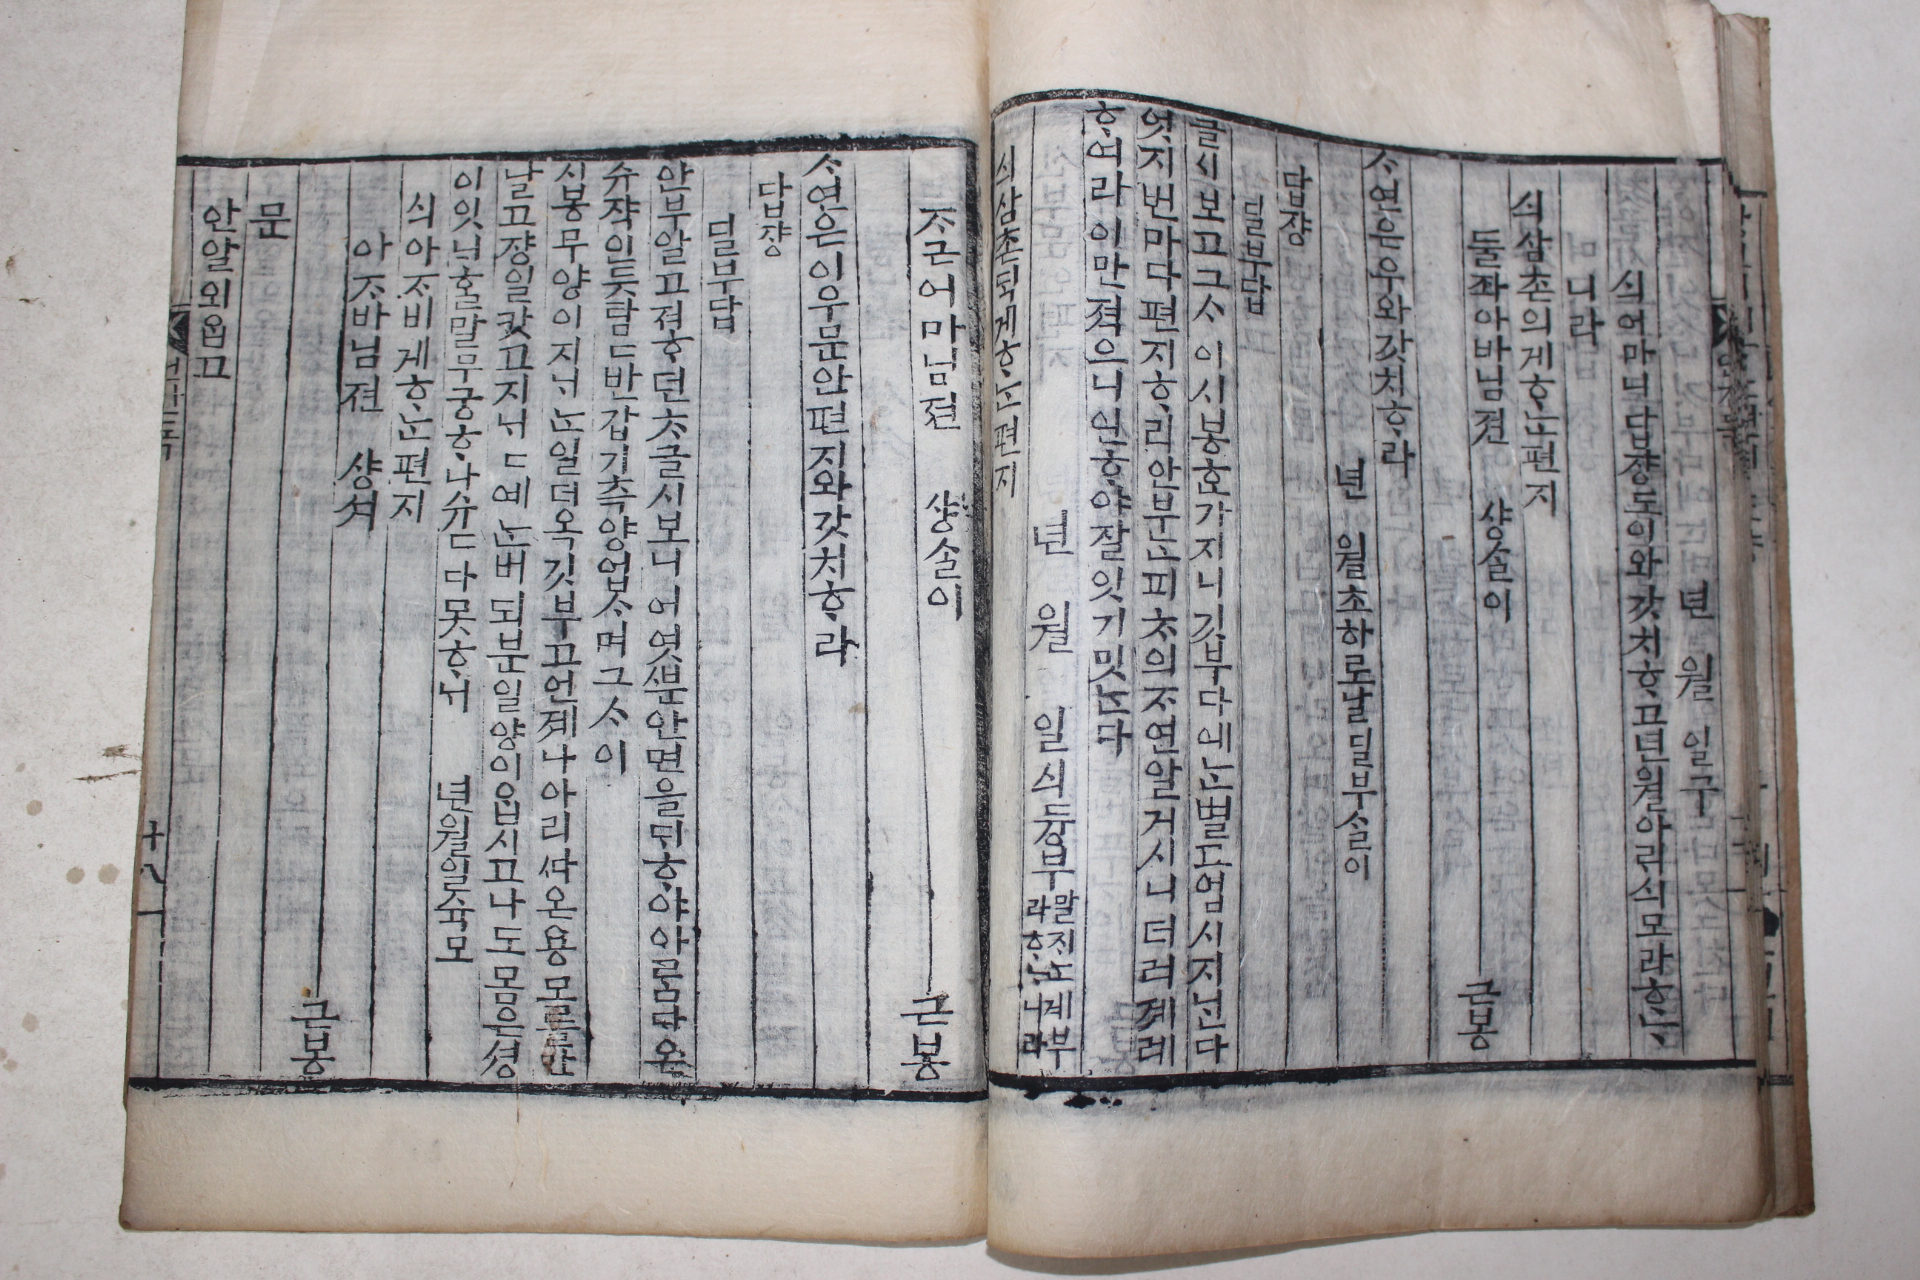 년 월 일 구
싀어마님답쟝도이와갓치ᄒᆞ고년월아ᄅᆡ싀모라ᄒᆞᄂᆞ
니라
싀삼촌의게ᄒᆞᄂᆞᆫ편지
둘ᄌᆡ아바님젼 샹ᄉᆞᆯ이
근봉
ᄉᆞ연은우와갓치ᄒᆞ라
년 월초하로날딜부ᄉᆞᆯ이
답쟝
딜부답
글시보고그ᄉᆞ이시봉ᄒᆞ가지니깃부다예ᄂᆞᆫ별고업시지ᄂᆡᆫ다
엇지번마다편지ᄒᆞ리안부ᄂᆞᆫ피ᄎᆞ의ᄌᆞ연알거시니더러계러
ᄒᆞ여라이만젹으니인ᄒᆞ야잘잇기밋ᄂᆞᆫ다
년 월 일싀듕부
말ᄌᆡᄂᆞᆫ계부라ᄒᆞᄂᆞ니라
싀삼촌ᄃᆡᆨ게ᄒᆞᄂᆞᆫ편지
ᄌᆞ근어마님젼 샹ᄉᆞᆯ이
근봉
ᄉᆞ연은인우문안편지와갓치ᄒᆞ라
답쟝
딜부답
안부알고져ᄒᆞ던ᄎᆞ글시보니어엿분안면을ᄃᆡᄒᆞ야아ᄅᆞᆷ다온
슈쟉인듯탐탐반갑기측양업ᄉᆞ며그ᄉᆞ이
시봉무양이지ᄂᆡᄂᆞᆫ일더옥깃부고언졔나아리ᄯᅡ온용모ᄅᆞᆯ
날고쟝일캇고지ᄂᆡᄂᆞᆫ버되분일양이읍시고나도몸은셩
이잇ᄂᆡᄒᆞᆯ말무궁ᄒᆞ나슈다못ᄒᆞᄂᆡ 년월일슉모
싀아ᄌᆞ비게ᄒᆞᄂᆞᆫ편지
아ᄌᆞ바님젼 샹셔
근봉
문
안알외읍고
언간독
十八